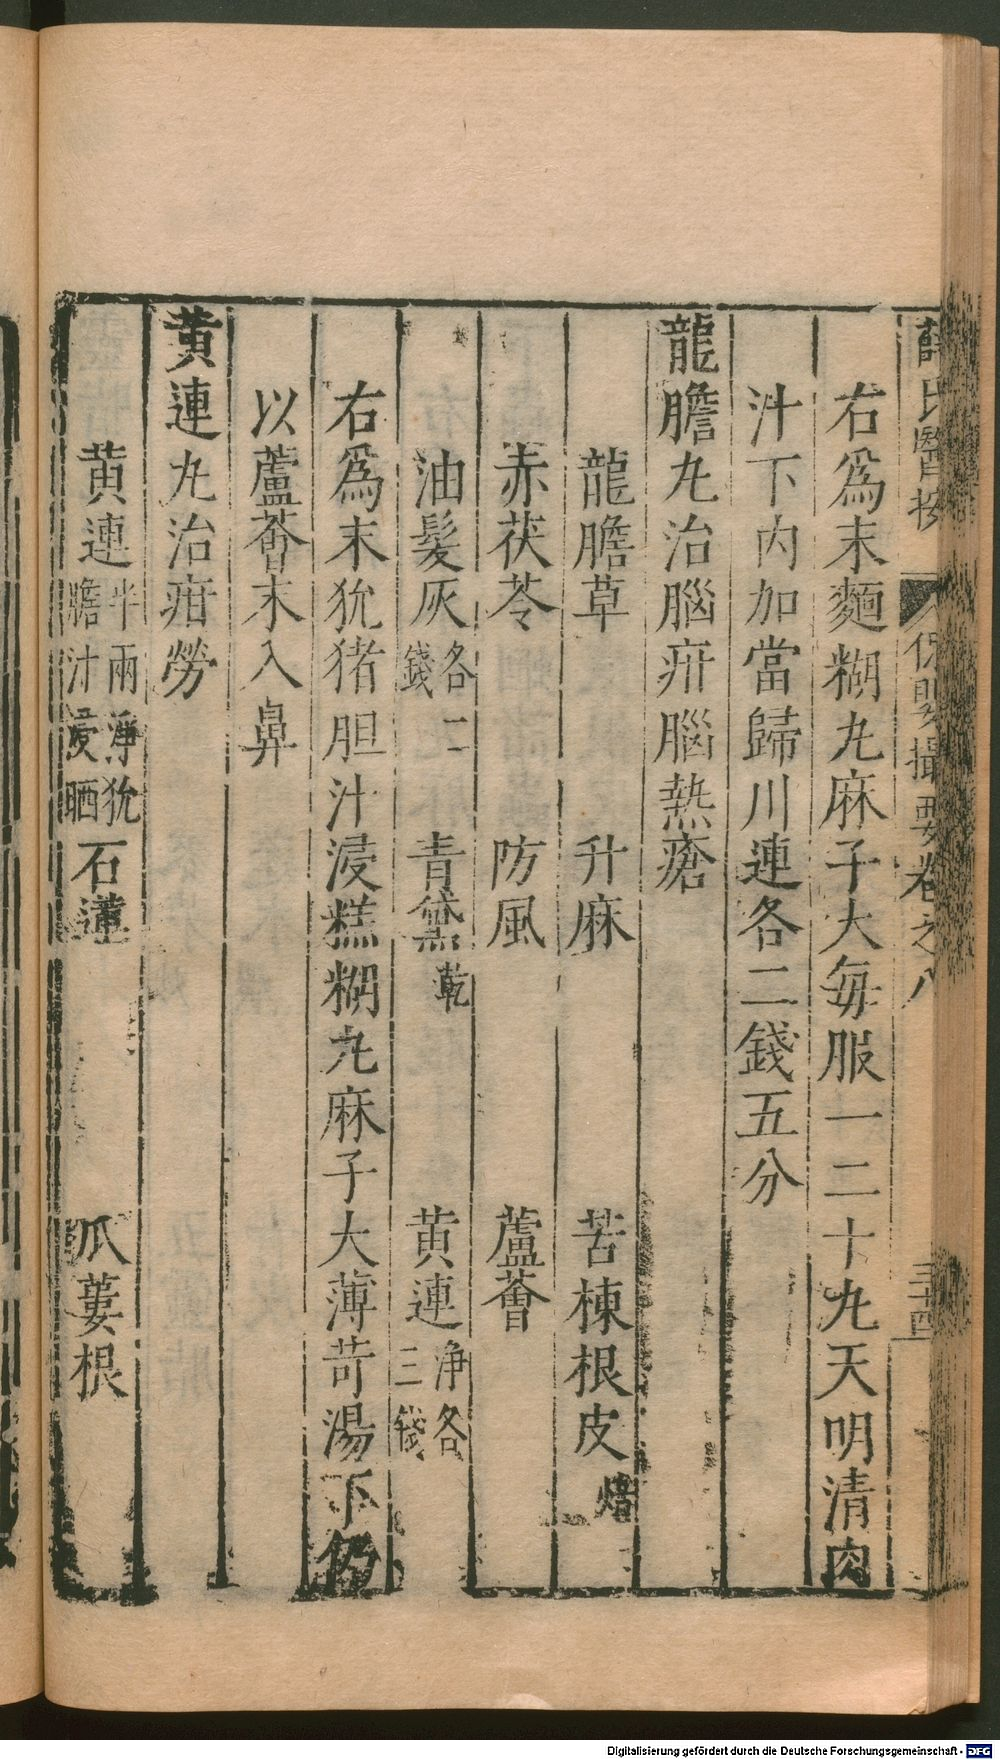 薛氏醫按 保嬰撮要卷之八 三十四
右爲末麵糊丸麻子大每服一二十丸天明清肉
汁下内加當歸川連各二錢五分
龍膽丸治腦疳腦熱瘡
龍膽草 升麻 苦楝根皮焙
赤茯苓 防風 蘆薈
油髮灰各二錢 青黛乾 黄連净各三錢
右爲末㹠猪胆汁浸糕糊丸麻子大薄苛湯下仍
以蘆薈末入鼻
黄連丸治疳勞
黄連半兩淨㹠膽汁浸晒 石蓮 瓜蔞根
Digitalisierung gefördert durch die Deutsche Forschungsgemeinschaft - DFG